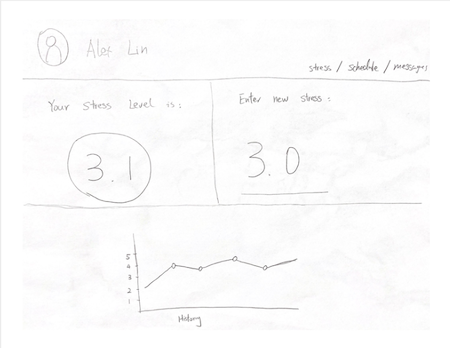 Alex Lin
stress / schedule / messages
Your Stress Level is:
3.1
Enter new stress:
3.0
5
4
3
2
1
History